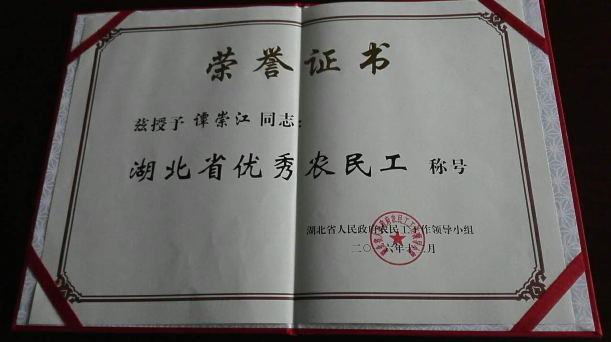 荣誉证书
兹授予 谭崇江 同志:
湖北省优秀农民工 称号
湖北省人民政府农民工工作领导小组
二〇一六年十二月